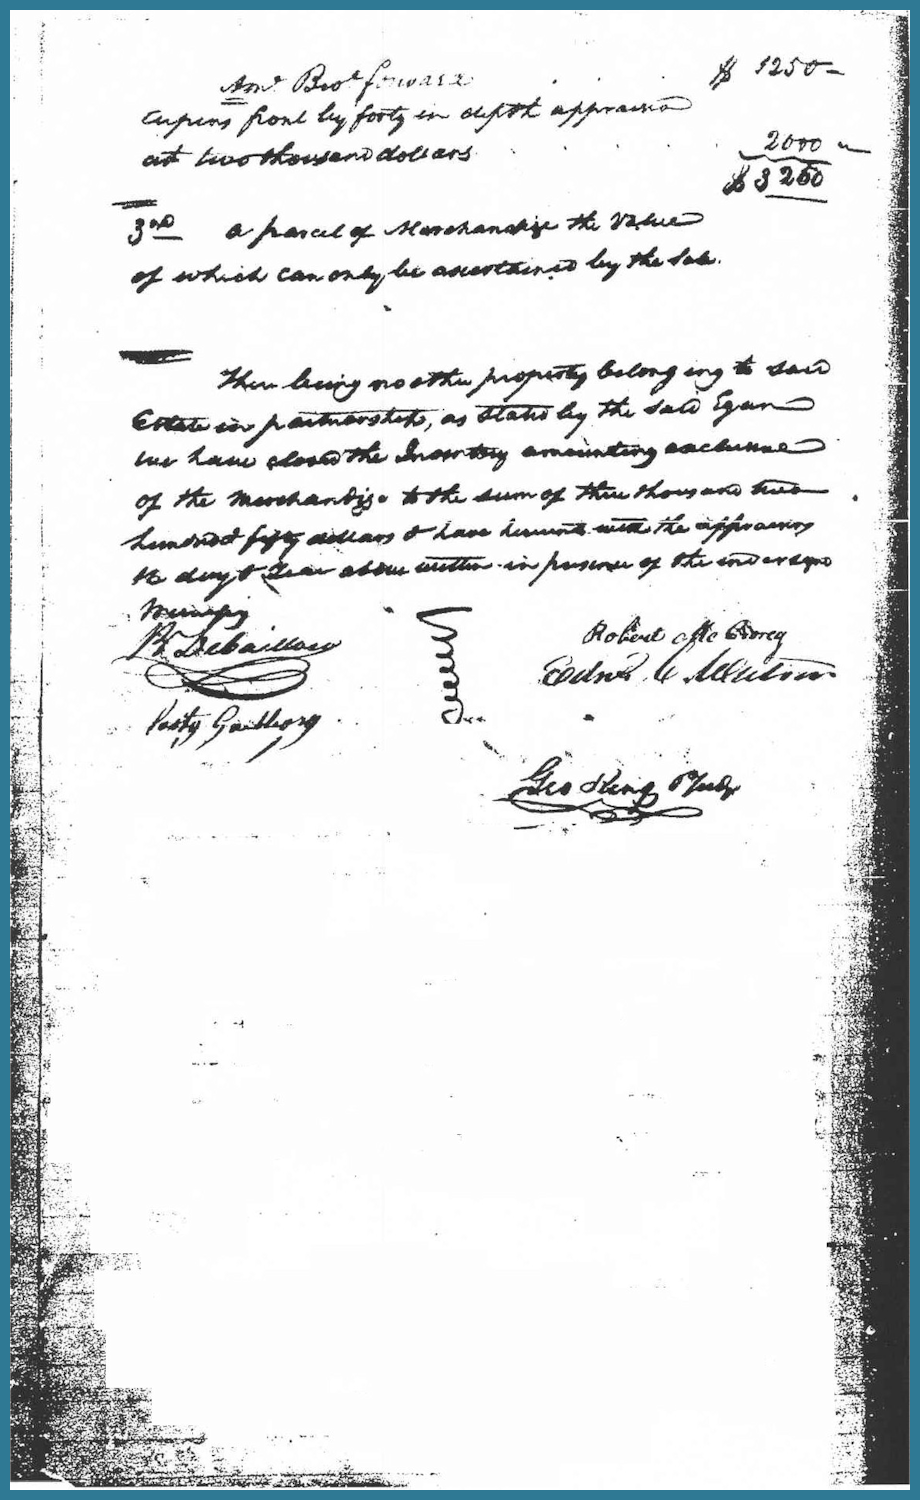 Amt Brot forward $ 1250-
arpens front by forty in depth appraised
at two thousand dollars 2000
$ 3250
3rd A parcel of Merchandize the Value
of which can only be ascertained by the Sale.
There being no other property belonging to said
Estate in partnership, as Stated by the said Egan
we have closed the Inventory amounting exclusive
of the Merchandize to the sum of three thousand two
hundred fifty dollars & have hereunto with the appraisers
the day & Year above written in presence of the undersignd
Witnesses
Bt DeBaillon
Robert McCrorey
Geo King PJudge